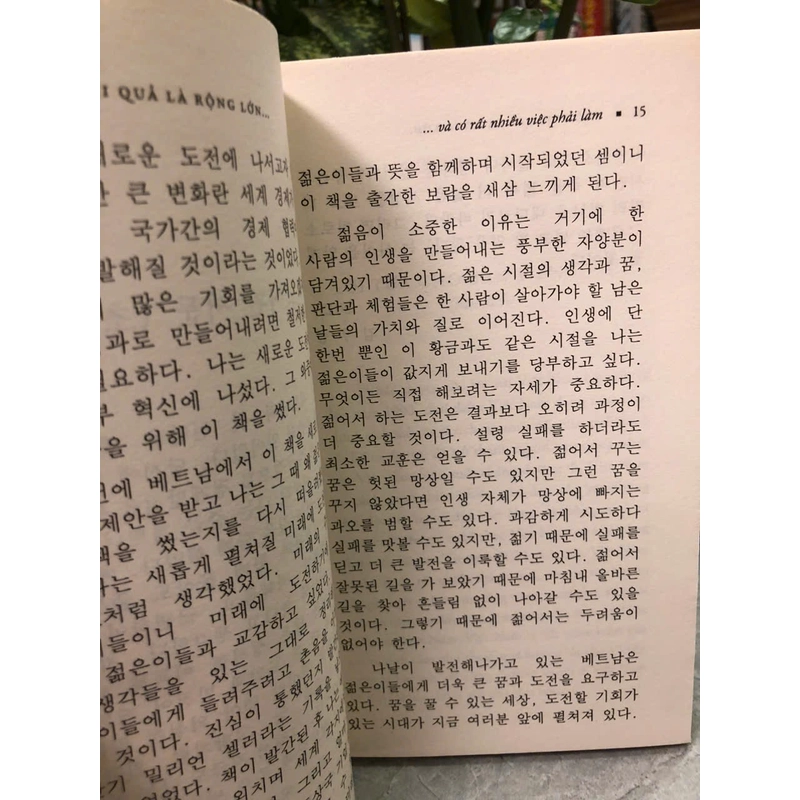 I QUẢ LÀ RỘNG LỚN...
도전에 나서고자
큰 변화란 세계 경제
국가간의 경제 협력
발해질 것이라는 것이었다
많은 기회를 가져오
과로 만들어내려면 철저한
필요하다. 나는 새로운 도전
혁신에 나섰다. 그
을 위해 이 책을 썼다.
전에 베트남에서 이 책을
제안을 받고 나는 그 때 왜
책을 썼는지를 다시
나는 새롭게 펼쳐질 미래에
처럼 생각했었다. 미래의
이들이니 미래에 도전하기에
젊은이들과 교감하고 싶었다.
생각들을 있는 그대로
이들에게 들려주려고 촌음을
것이다. 진심이 통했던지
밀리언 셀러라는 기록을
되었다. 책이 발간된 후 나는
외치며 세계
그리고
... và có rất nhiều việc phải làm ▪ 15
젊은이들과 뜻을 함께하며 시작되었던 셈이니
이 책을 출간한 보람을 새삼 느끼게 된다.
젊음이 소중한 이유는 거기에 한
사람의 인생을 만들어내는 풍부한 자양분이
담겨있기 때문이다. 젊은 시절의 생각과 꿈,
판단과 체험들은 한 사람이 살아가야 할 남은
날들의 가치와 질로 이어진다. 인생에 단
한번 뿐인 이 황금과도 같은 시절을 나는
젊은이들이 값지게 보내기를 당부하고 싶다.
무엇이든 직접 해보려는 자세가 중요하다.
젊어서 하는 도전은 결과보다 오히려 과정이
더 중요할 것이다. 설령 실패를 하더라도
최소한 교훈은 얻을 수 있다. 젊어서 꾸는
꿈은 헛된 망상일 수도 있지만 그런 꿈을
꾸지 않았다면 인생 자체가 망상에 빠지는
과오를 범할 수도 있다. 과감하게 시도하다
실패를 맛볼 수도 있지만, 젊기 때문에 실패를
딛고 더 큰 발전을 이룩할 수도 있다. 젊어서
잘못된 길을 가 보았기 때문에 마침내 올바른
길을 찾아 흔들림 없이 나아갈 수도 있을
것이다. 그렇기 때문에 젊어서는 두려움이
없어야 한다.
나날이 발전해나가고 있는 베트남은
젊은이들에게 더욱 큰 꿈과 도전을 요구하고
있다. 꿈을 꿀 수 있는 세상, 도전할 기회가
있는 시대가 지금 여러분 앞에 펼쳐져 있다.